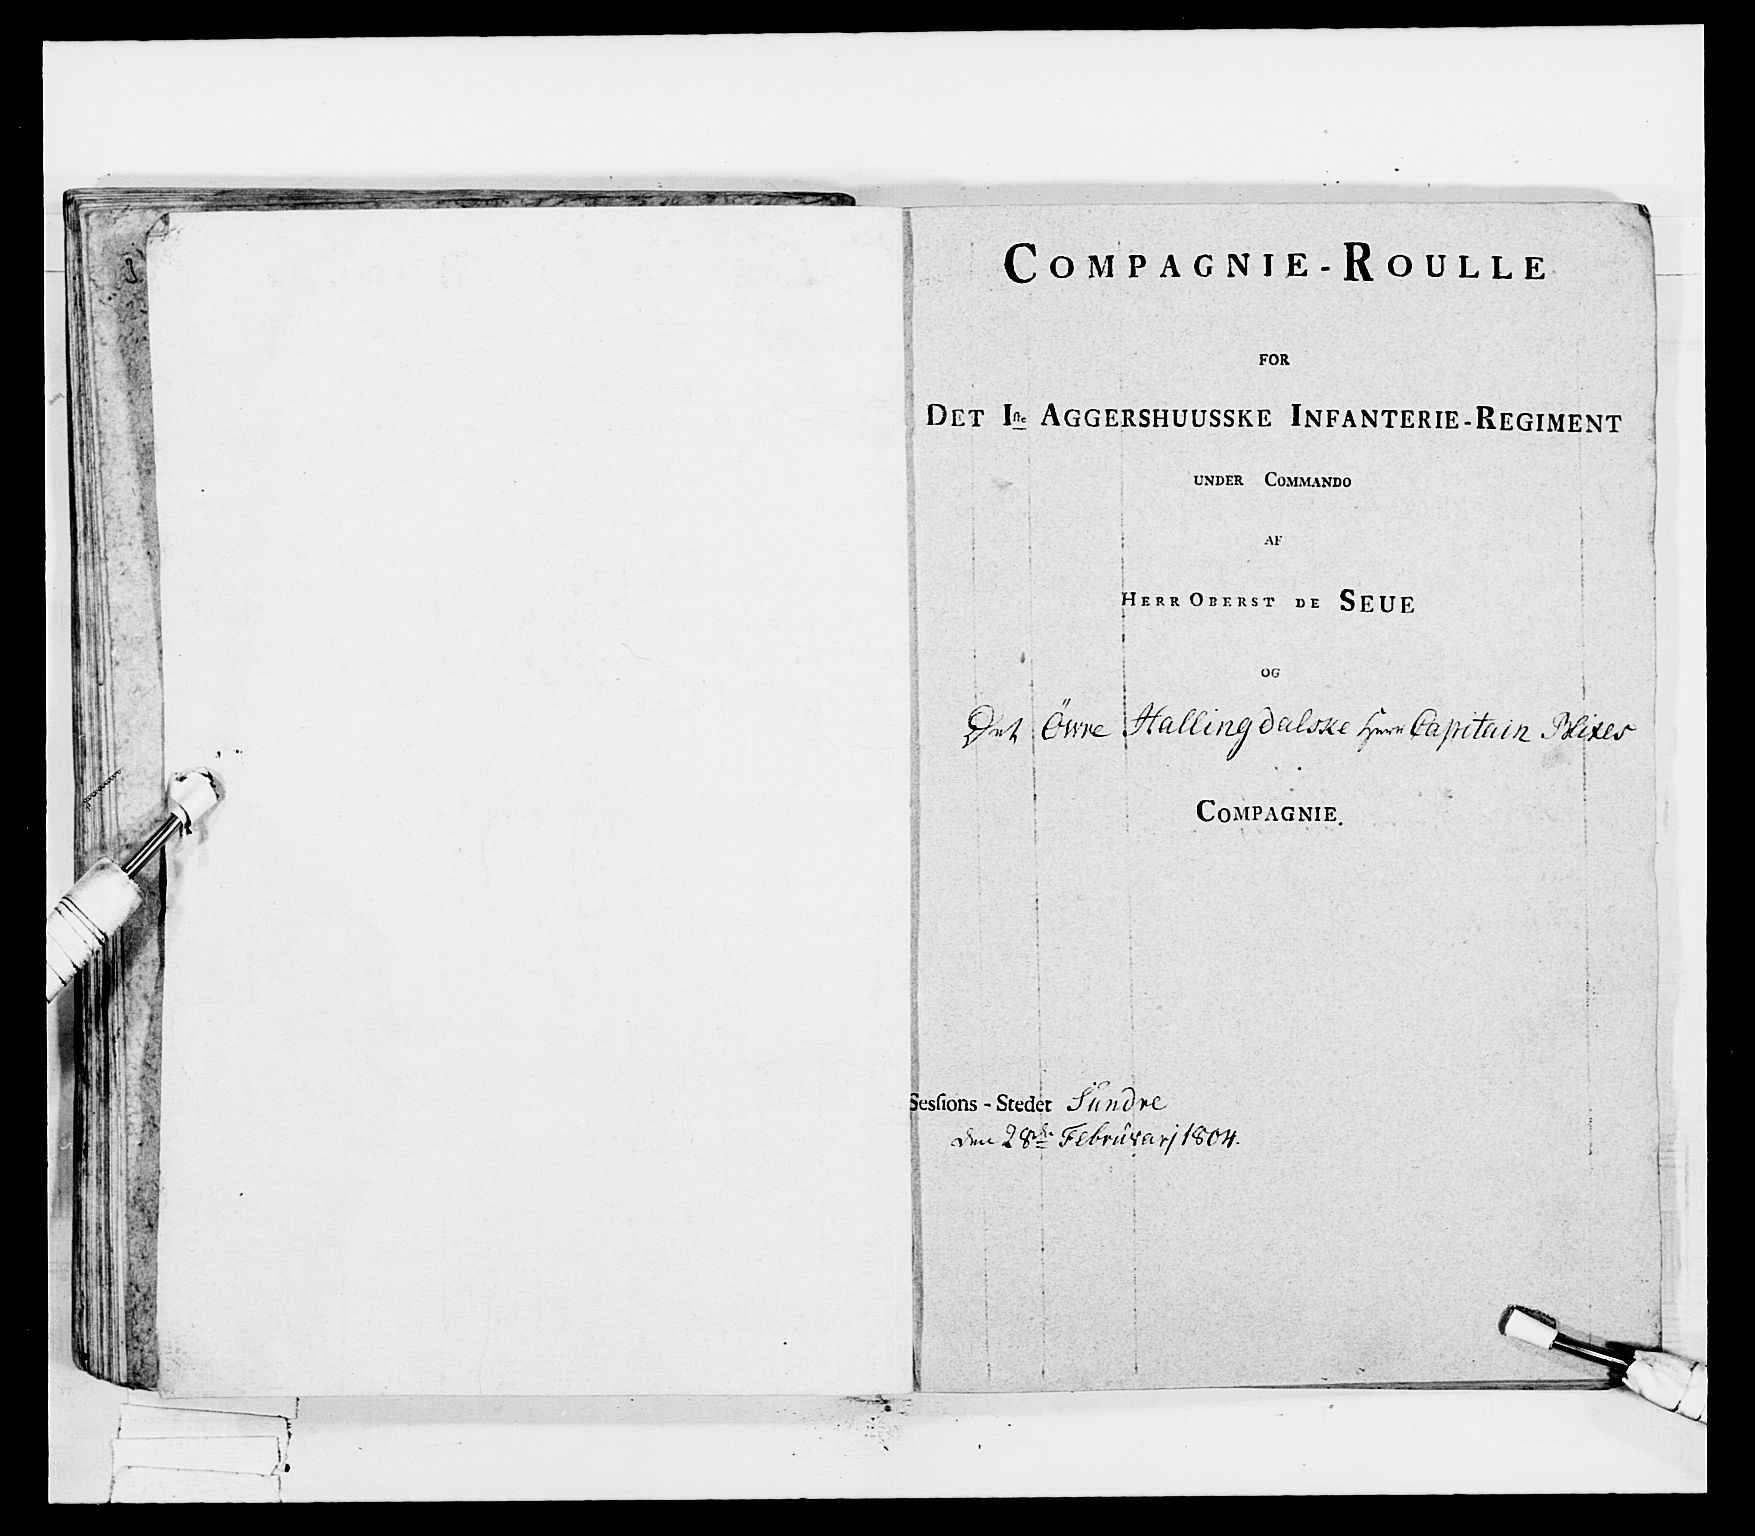 COMPAGNIE-ROULLE
FOR
DET Iste AGGERSHUUSSKE INFANTERIE-REGIMENT
UNDER COMMANDO
AF
HERR OBERST DE SEUE
OG
Det Öwre Hallingdalske Herr Capitain Blixes
COMPAGNIE.
Sesſions-Stedet Sundre
den 28de Februarj 1804.